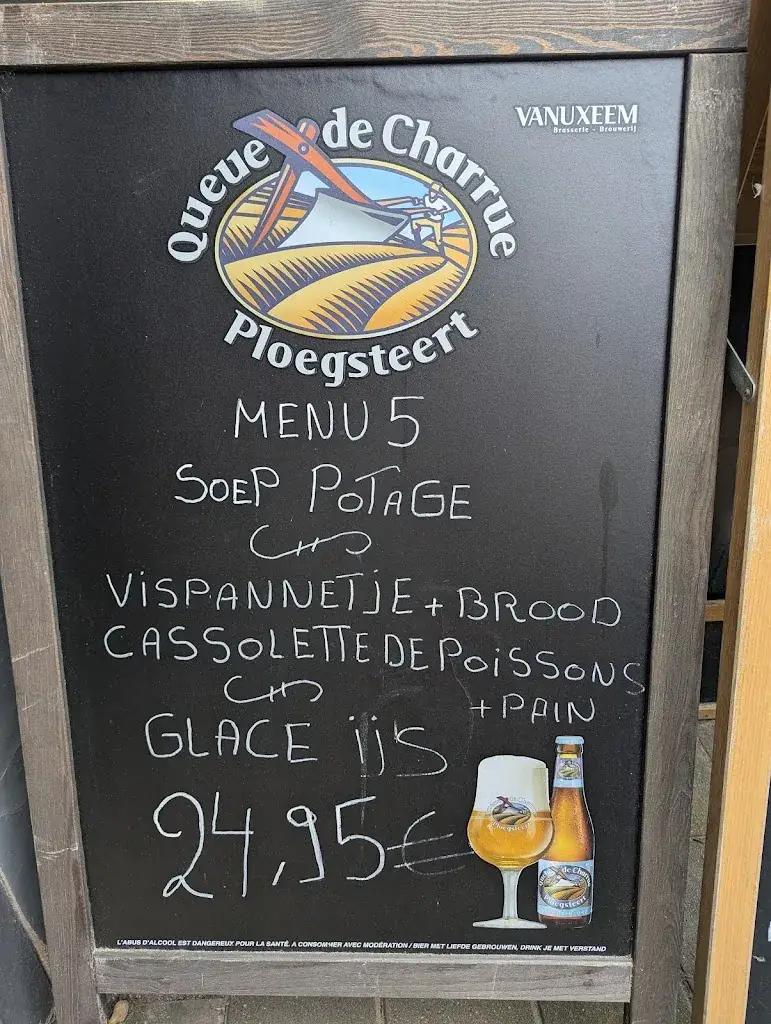 VANUXEEM
Brasserie - Brouwerij
Queue de Charrue
Ploegsteert
MENU 5
SOEP POTAGE
VISPANNETJE + BROOD
CASSOLETTE DE POISSONS
+ PAIN
GLACE ijs
24,95 €
Queue de Charrue
Ploegsteert
L'ABUS D'ALCOOL EST DANGEREUX POUR LA SANTÉ. A CONSOMMER AVEC MODÉRATION / BIER MET LIEFDE GEBROUWEN, DRINK JE MET VERSTAND